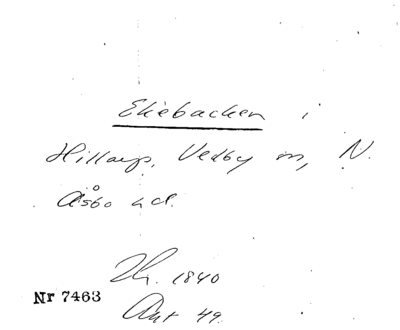 Ekebacken i
Hillarp, Vedby sn, N.
Åsbo hd.
Hr. 1840
Nr 7463
Ant 49.